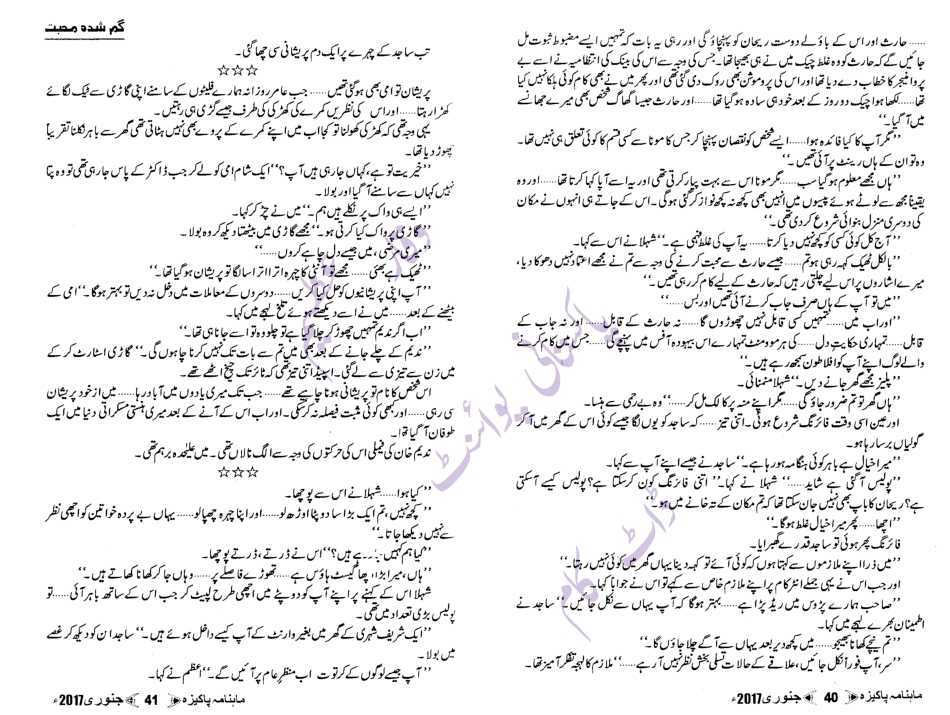 ...... حارث اور اس کے باؤلے دوست ریحان کو پہنچاؤ گی اور رہی یہ بات کہ تمہیں ایسے مضبوط ثبوت مل
جائیں گے کہ حارث کو وہ غلط چیک میں نے ہی بھیجا تھا۔ جس کی وجہ سے اس کی بینک کی انتظامیہ نے اسے بے
پروا منیجر کا خطاب دے دیا تھا اور اس کی پروموشن بھی روک دی گئی تھی اور پھر میں نے بھی کام کوئی ہلکا نہیں کیا
تھا...... لکھا ہوا چیک دو روز کے بعد خود ہی سادہ ہو گیا تھا...... اور حارث جیسا گھاگ شخص بھی میرے جھانسے
میں آ گیا۔‘‘
’’مگر آپ کا کیا فائدہ ہوا...... ایسے شخص کو نقصان پہنچا کر جس کا مونا سے کسی قسم کا کوئی تعلق ہی نہیں تھا۔
وہ تو ان کے ہاں رینٹ پر آئی تھیں۔‘‘
’’ہاں مجھے معلوم ہو گیا سب...... مگر مونا اس سے بہت پیار کرتی تھی اور یہ اسے آپا کہا کرتا تھا...... اور وہ
یقیناً مجھ سے لوٹے ہوئے پیسوں میں انہیں بھی کچھ نہ کچھ نواز کر گئی ہوگی۔ اس کے جاتے ہی انہوں نے مکان
کی دوسری منزل بنوانی شروع کر دی تھی۔‘‘
’’آج کل کوئی کسی کو کچھ نہیں دیا کرتا...... یہ آپ کی غلط فہمی ہے۔‘‘ شہلا نے اس سے کہا۔
’’بالکل ٹھیک کہہ رہی ہو تم...... جیسے حارث سے محبت کرنے کی وجہ سے تم نے مجھے اعتماد نہیں دھوکا دیا،
میرے اشاروں پر اس لیے چلتی رہیں کہ حارث کے لیے کام کر رہی تھیں۔‘‘
’’میں تو آپ کے ہاں صرف جاب کرنے آئی تھیں اور بس......‘‘
’’اور اب میں...... تمہیں کسی قابل نہیں چھوڑوں گا...... نہ حارث کے قابل...... اور نہ جاب کے
قابل...... تمہاری حکایت دل...... کی ہر موومنٹ تمہارے اس بیہودہ آفس میں پہنچے گی...... جس میں کام کرنے
والے لوگ اپنے آپ کو افلاطون سمجھ رہے ہیں۔‘‘
’’پلیز مجھے گھر جانے دیں۔‘‘ شہلا منمنائی۔
’’ہاں گھر تو تم ضرور جاؤ گی...... مگر اپنے منہ پر کالک مل کر......‘‘ وہ بے رحمی سے ہنسا۔
اور عین اسی وقت فائرنگ شروع ہوئی۔ اتنی تیز...... کہ ساجد کو یوں لگا جیسے کوئی اس کے گھر میں آ کر
گولیاں برسا رہا ہو۔
’’میرا خیال ہے باہر کوئی ہنگامہ ہو رہا ہے۔‘‘ ساجد نے جیسے اپنے آپ سے کہا۔
’’پولیس آ گئی ہے شاید......‘‘ شہلا نے کہا۔ ’’اتنی فائرنگ کون کر سکتا ہے؟ پولیس کیسے آ سکتی
ہے؟ ریحان کا باپ بھی نہیں جان سکتا تھا کہ تم مکان کے تہ خانے میں ہو۔‘‘
’’اچھا...... پھر میرا خیال غلط ہوگا۔‘‘
فائرنگ پھر ہوئی تو ساجد قدرے گھبرایا۔
’’میں ذرا اپنے ملازموں سے کہتا ہوں کہ کوئی آئے تو کہہ دینا یہاں گھر میں کوئی نہیں رہتا۔‘‘
اور جب اس نے یہی جملے انٹرکام پر اپنے ملازم خاص سے کہے تو اس نے جواباً کہا۔
’’صاحب ہمارے پڑوس میں ریڈ پڑا ہے...... بہتر ہوگا کہ آپ یہاں سے نکل جائیں۔‘‘ ساجد نے
اطمینان بھرے لہجے میں کہا۔
’’تم نیچے کھانا بھیجو...... میں کچھ دیر بعد یہاں سے آگے چلا جاؤں گا۔‘‘
’’سر، آپ فوراً نکل جائیں، علاقے کے حالات تسلی بخش نظر نہیں آ رہے......‘‘ ملازم کا لہجہ تفکر آمیز تھا۔
ماہنامہ پاکیزہ 40 جنوری 2017ء
گم شدہ محبت
تب ساجد کے چہرے پر ایک دم پریشانی سی چھا گئی۔
☆☆☆
پریشان تو امی بھی ہو گئی تھیں...... جب عامر روزانہ ہمارے فلیٹوں کے سامنے اپنی گاڑی سے ٹیک لگائے
کھڑا رہتا...... اور اس کی نظریں کمرے کی کھڑکی کی طرف جیسے گڑی ہی رہتیں۔
یہی وجہ تھی کہ کھڑکی کھولنا تو کجا اب میں اپنے کمرے کے پردے بھی نہیں ہٹاتی تھی گھر سے باہر نکلنا تقریباً
چھوڑ دیا تھا۔
’’خیریت تو ہے، کہاں جا رہی ہیں آپ؟‘‘ ایک شام امی کو لے کر جب ڈاکٹر کے پاس جا رہی تھی تو وہ پتا
نہیں کہاں سے سامنے آ گیا اور بولا۔
’’ایسے ہی واک پر نکلے ہیں ہم۔‘‘ میں نے چڑ کر کہا۔
’’گاڑی پر واک کیا کرتی ہو۔‘‘ مجھے گاڑی میں بیٹھتا دیکھ کر وہ بولا۔
’’میری مرضی، میں جیسے دل چاہے کروں......‘‘
’’ٹھیک ہے بھئی...... مجھے تو آنٹی کا چہرہ اترا اترا سا لگا تو پریشان ہو گیا تھا۔‘‘
’’آپ اپنی پریشانیوں کو حل کیا کریں...... دوسروں کے معاملات میں دخل نہ دیں تو بہتر ہوگا۔‘‘ امی کے
بیٹھنے کے بعد...... میں نے اسے دیکھتے ہوئے تلخ لہجے میں کہا۔
’’اب اگر ندیم تمہیں چھوڑ کر چلا گیا ہے تو چلو وہ تو اسے جانا ہی تھا۔‘‘
’’ندیم کے چلے جانے کے بعد بھی میں تم سے بات تک نہیں کرنا چاہوں گی۔‘‘ گاڑی اسٹارٹ کر کے
میں زن سے تیزی سے لے گئی۔ اسپیڈ اتنی تیز تھی کہ ٹائر تک چیخ اٹھے تھے۔
اس شخص کا نام تو پریشانی ہونا چاہیے تھے...... جب تک میری یادوں میں آباد رہا...... میں از خود پریشان
سی رہی...... اور بھی کوئی مثبت فیصلہ نہ کر سکی۔ اور اب اس کے آنے کے بعد میری ہنستی مسکراتی دنیا میں ایک
طوفان آ گیا تھا۔
ندیم خان کی فیملی اس کی حرکتوں کی وجہ سے الگ نالاں تھی۔ میں علیحدہ برہم تھی۔
☆☆☆
’’کیا ہوا......‘‘ شہلا نے اس سے پوچھا۔
’’کچھ نہیں، تم ایک بڑا سا دوپٹا اوڑھ لو...... اور اپنا چہرہ چھپا لو...... یہاں بے پردہ خواتین کو اچھی نظر
سے نہیں دیکھا جاتا۔‘‘
’’کیا ہم کہیں جا رہے ہیں؟‘‘ اس نے ڈرتے، ڈرتے پوچھا۔
’’ہاں، میرا بڑا اچھا گیسٹ ہاؤس ہے...... تھوڑے فاصلے پر...... وہاں جا کر کھانا کھاتے ہیں۔‘‘
شہلا اس کے کہنے پر اپنے آپ کو دوپٹے میں اچھی طرح لپیٹ کر جب اس کے ساتھ باہر آئی...... تو
پولیس بڑی تعداد میں تھی۔
’’ایک شریف شہری کے گھر میں بغیر وارنٹ کے آپ کیسے داخل ہوئے ہیں۔‘‘ ساجد ان کو دیکھ کر غصے
میں بولا۔
’’آپ جیسے لوگوں کے کرتوت اب منظر عام پر آئیں گے۔‘‘ اعظم نے کہا۔
ماہنامہ پاکیزہ 41 جنوری 2017ء
پاکستانی پوائنٹ
ڈاٹ کام